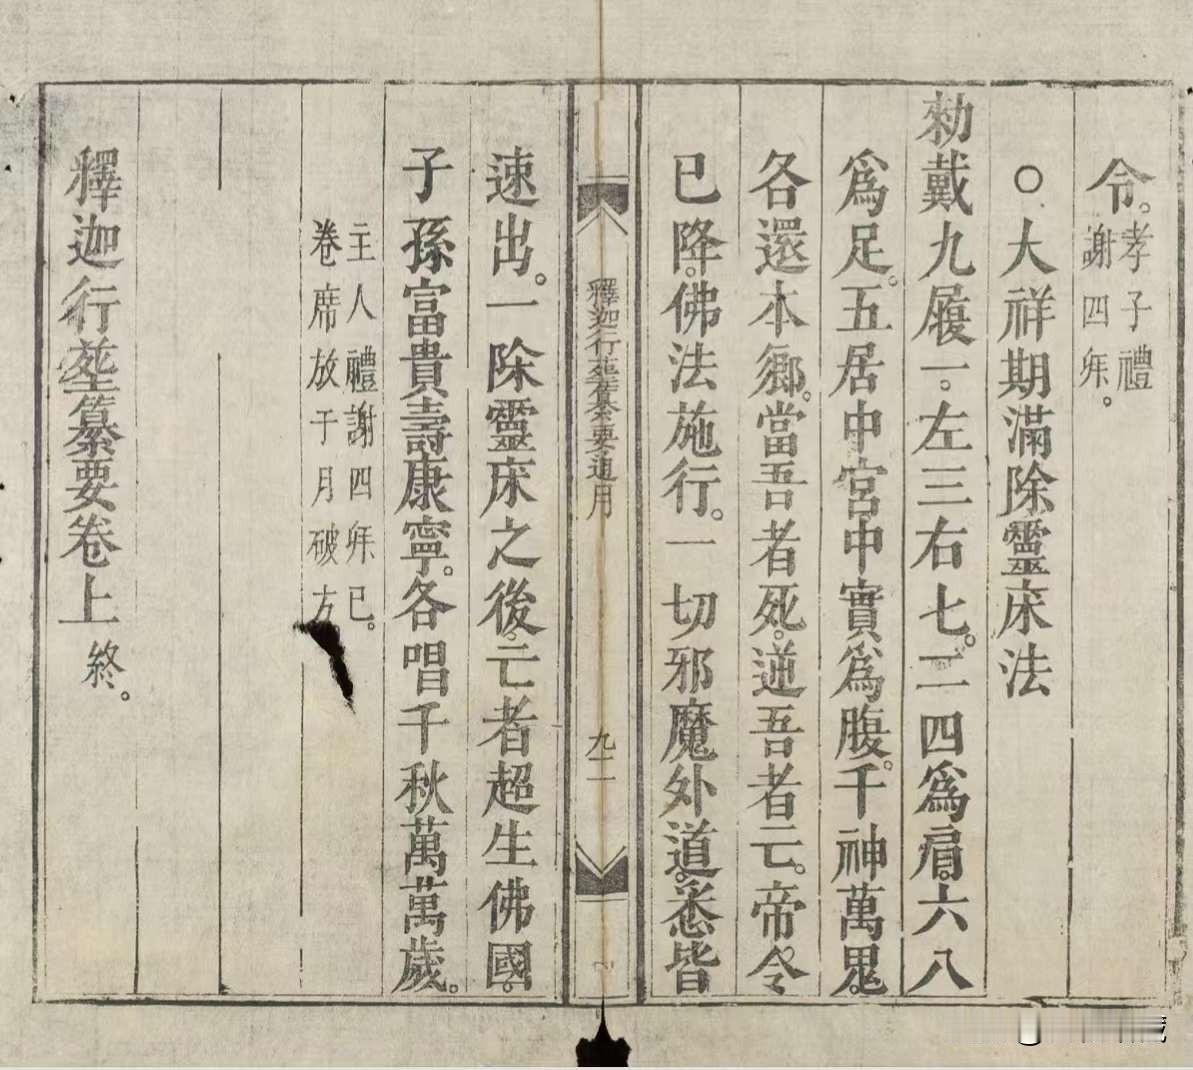 令。孝子禮
謝四拜。
○大祥期滿除靈床法
勑戴九履一。左三右七。二四爲肩。六八
爲足。五居中宮中實爲腹。千神萬鬼。
各還本鄉。當吾者死。逆吾者亡。帝令
已降。佛法施行。一切邪魔外道。悉皆
釋迦行𦵏纂要通用
九二
速出。一除靈床之後。亡者超生佛國。
子孫富貴壽康寧。各唱千秋萬萬歲。
主人禮謝四拜已。
卷席放于月破方
釋迦行𦵏纂要卷上終。